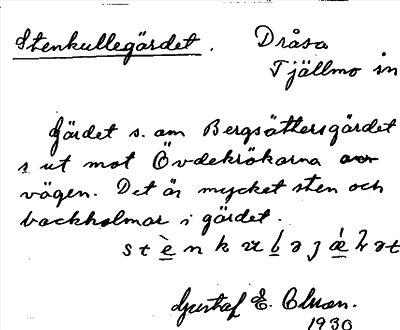 Stenkullegärdet. Dråsa
Tjällmo sn
Gärdet s. om Bergsättersgärdet
s ut mot Övdekrökarna
vägen. Det är mycket sten och
backholmar i gärdet.
Gustaf E. Olsson.
1930